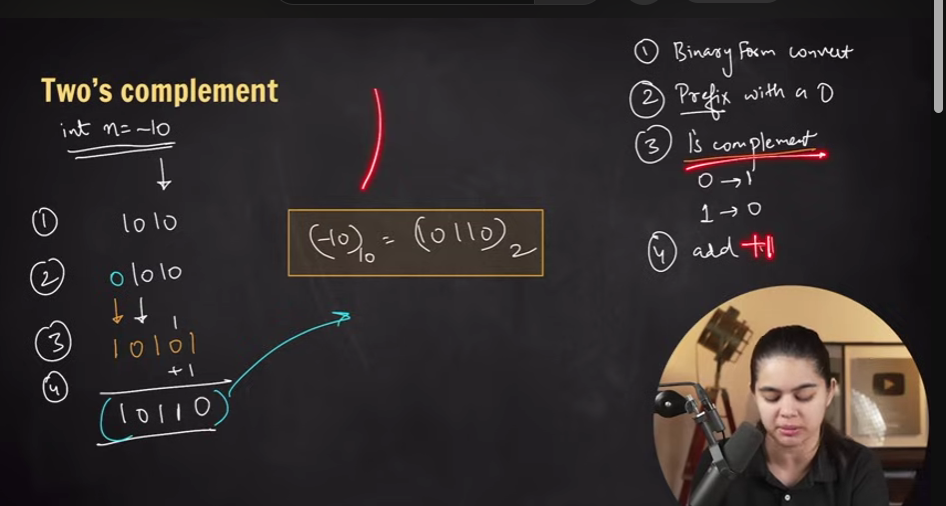 Two's complement
int n = -10
① 1010
② 01010
1
③ 10101
+1
④
(10110)
(-10)10 = (10110)2
① Binary Form convert
② Prefix with a 0
③ 1's complement
0 → 1
1 → 0
④ add +1